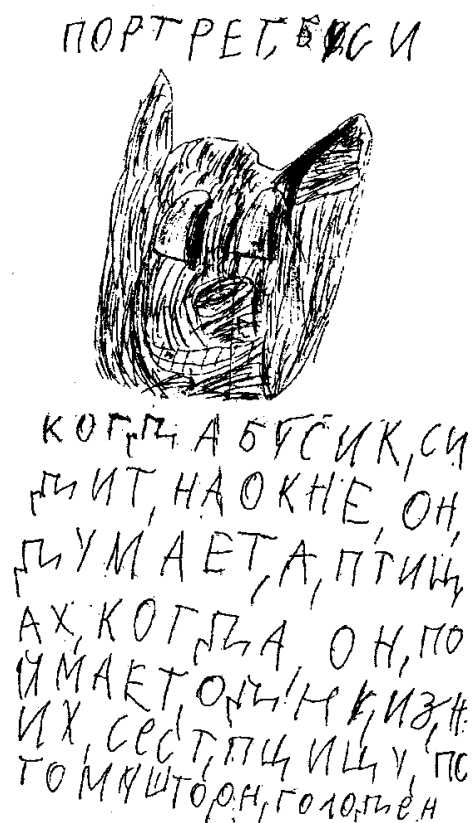 ПОРТРЕТ, БУСИ
КОГДА БУСИК, СИ
ДИТ, НА ОКНЕ, ОН,
ДУМАЕТ, А, ПТИЦ
АХ, КОГДА, ОН, ПО
ЙМАЕТ, ОДИН К, ИЗ, Н
ИХ, СЕСТ, ПЦ ИЩУ, ПО
ТОМУШТО, ОН, ГОЛОДЕН